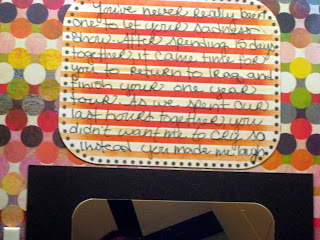 You've never really been
one to let your sadness
show. After spending 15 days
together it came time for
you to return to Iraq and
finish your one year
tour. As we spent our
last hours together you
didn't want me to cry, so
instead you made me laugh